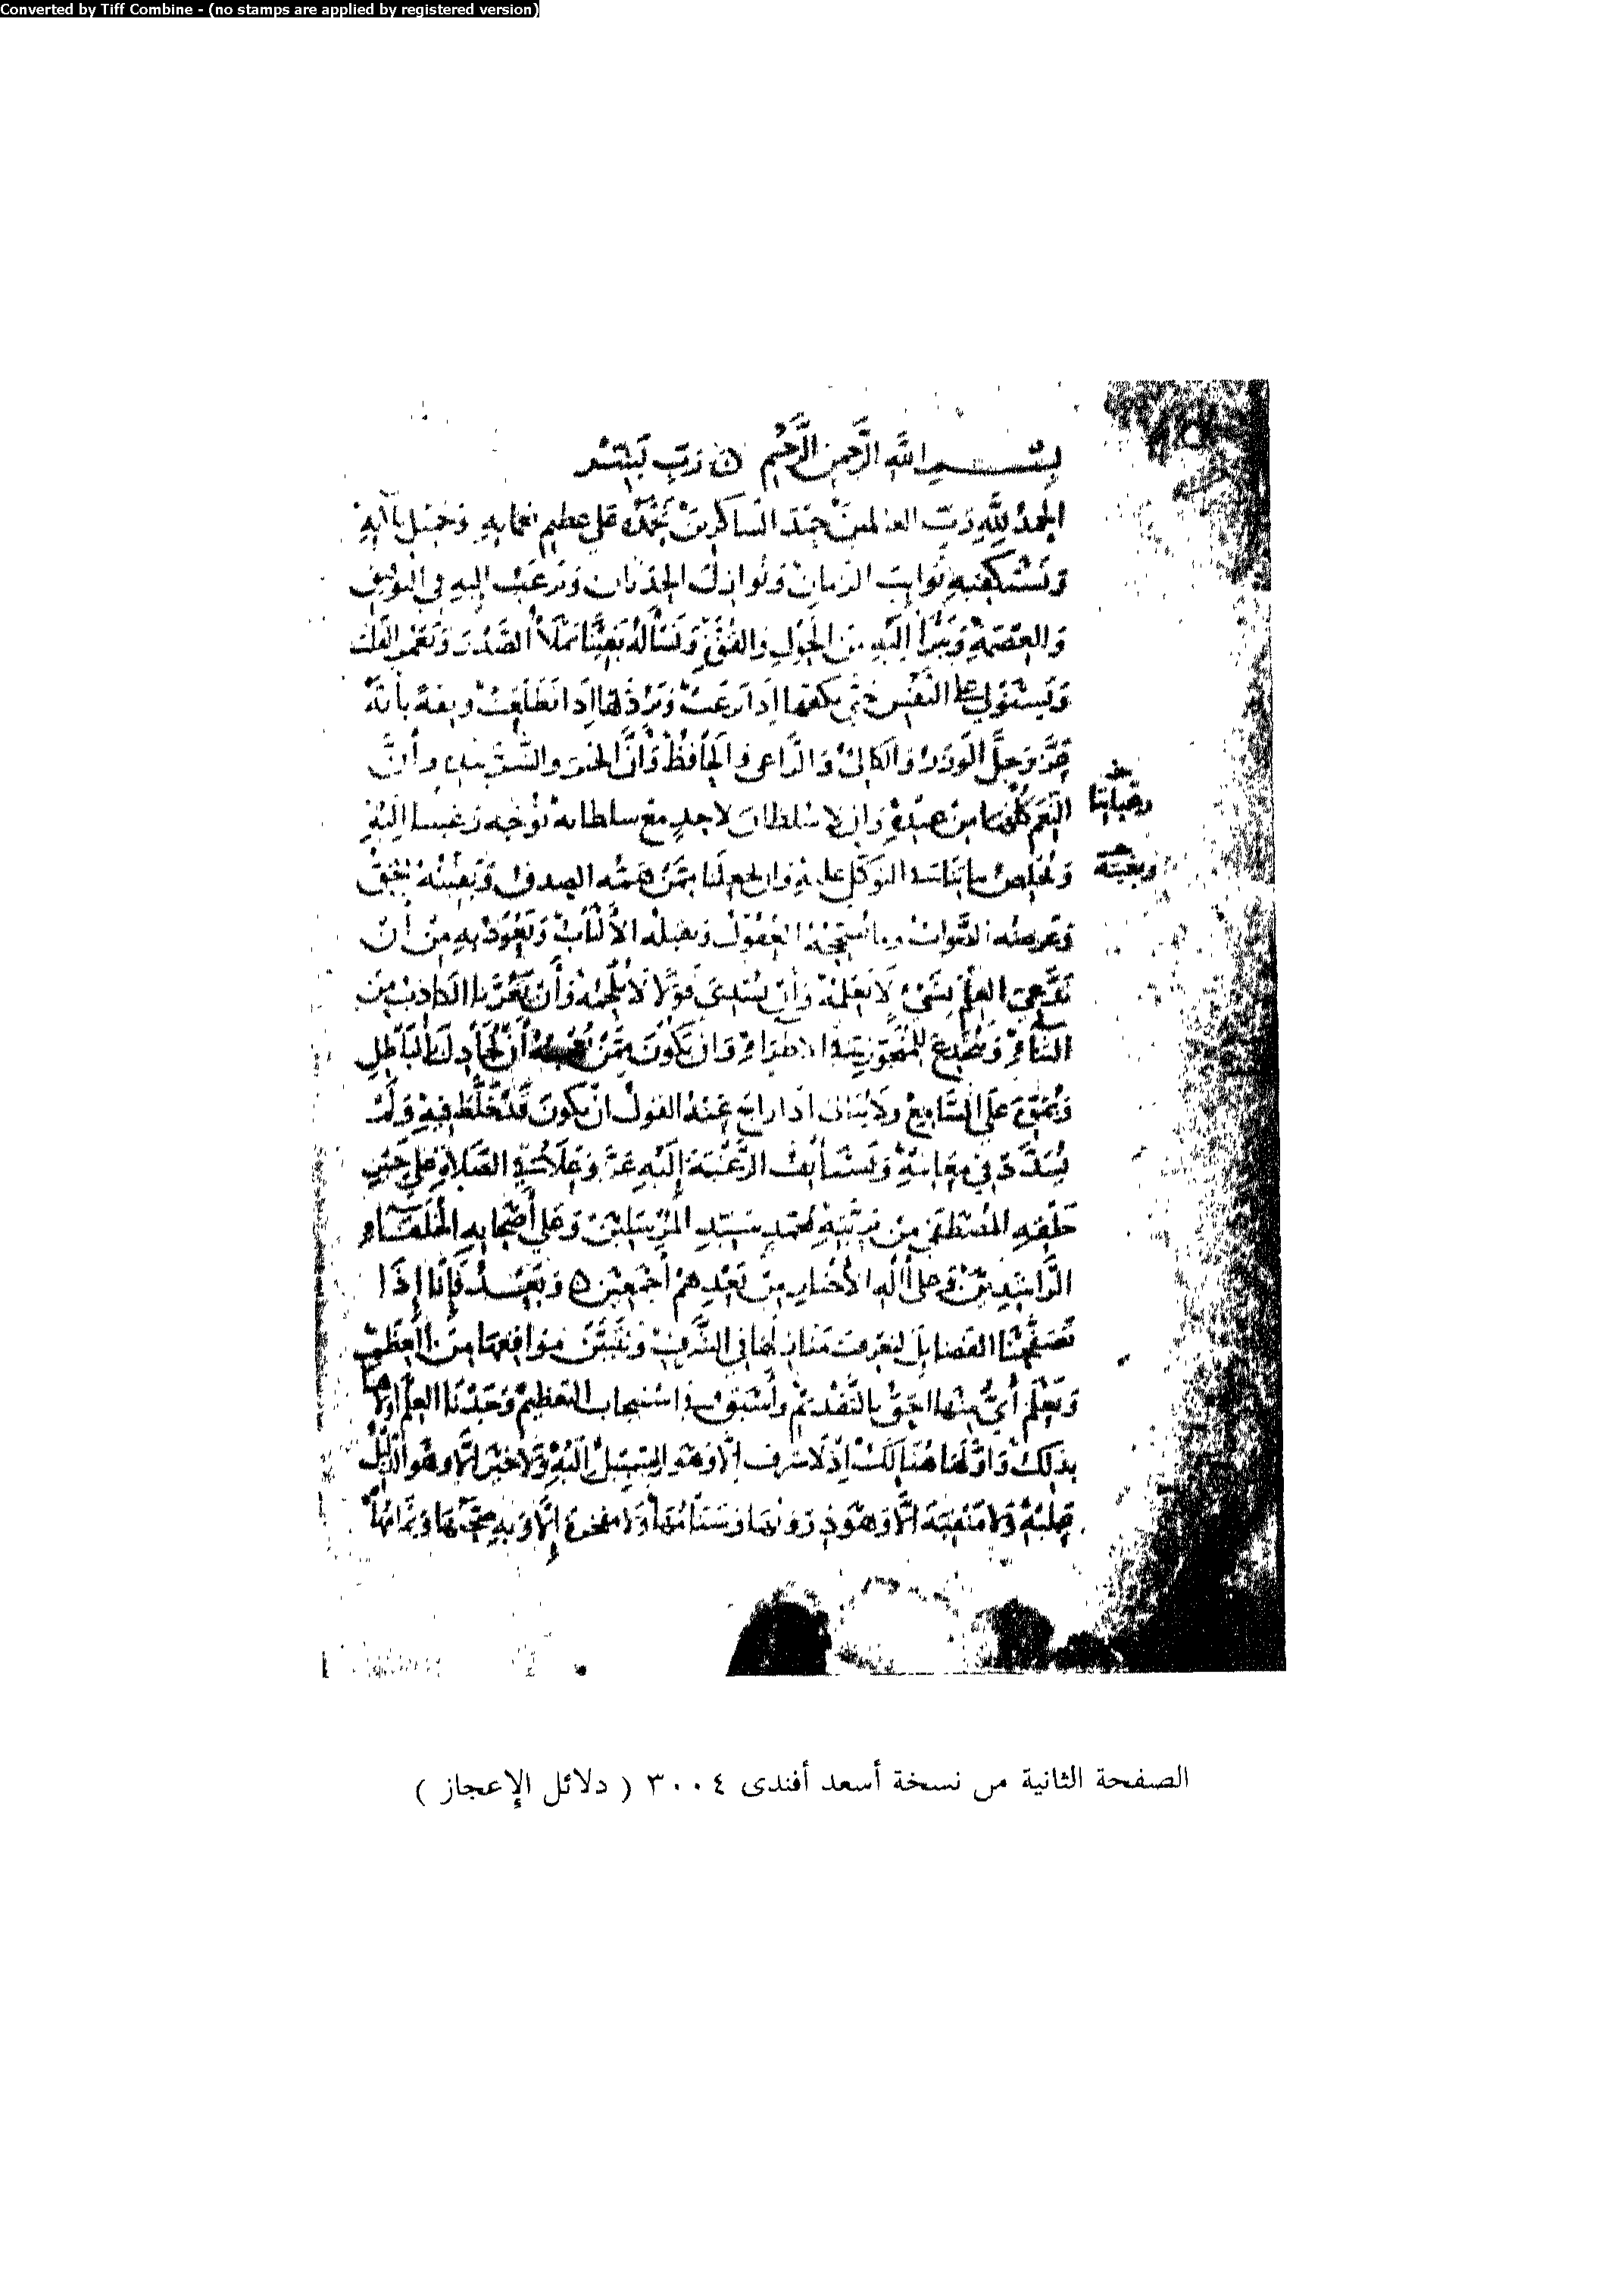 Converted by Tiff Combine - (no stamps are applied by registered version)
بسم الله الرحمن الرحيم ۞ رب يسر
الحمد لله رب العالمين حمد الشاكرين نحمده على عظيم نعمايه وجميل بلآيه
ونستكفيه نوايب الزمان ونوازل الحدثان ونرغب إليه في التوفيق
والعصمة ونبرأ إليه من الحول والقوة ونسأله يقينا يملأ الصدر ويعمر القلب
ويستولي على النفس حتى يكفها إذا نزغت ويردها إذا تطلعت وثقة بأنه
عز وجل الوزر والكالئ والراعي والحافظ وأن الخير والشر بيده وأن
النعم كلها من عنده وأن لا سلطان لأحد مع سلطانه نوجه رغبتنا إليه
رغباتنا
ونخلص نياتنا في التوكل عليه وأن يجعلنا ممن همه الصدق وبغيته الحق
وبغيته
وغرضه الصواب وما تصححه العقول وتقبله الألباب ونعوذ به من أن
ندعي العلم بشيء لا نعلمه وأن نسدي قولا لا نلحمه وأن نكون ممن يغره الكاذب من
الثناء وينخدع للمتجوز في الإطراء وأن يكون أن يجادل بالباطل
ويموه على السامع ولا يبالي إذا راج عنه القول أن يكون قد خلط فيه ولم
يسدد في معانيه ونستأنف الرغبة إليه عز وعلا في الصلاة على خير
خلقه المصطفى من بريته محمد سيد المرسلين وعلى أصحابه الخلفاء
الراشدين وعلى آله الأخيار من بعدهم أجمعين ۞ وبعد فإنا إذا
تصفحنا الفضايل لنعرف منازلها في الشرف ونتبين مواقعها من العظم
ونعلم أي منها أحق بالتقديم وأسبق في استيجاب التعظيم وجدنا العلم أولاها
بذلك وأولها هنالك إذ لا شرف إلا وهو السبيل إليه ولا خير إلا وهو الدليل
عليه ولا منقبة إلا وهو ذروتها وسنامها ولا مفخرة إلا وبه صحتها وتمامها
الصفحة الثانية من نسخة أسعد أفندى ٣٠٠٤ ( دلائل الإعجاز )